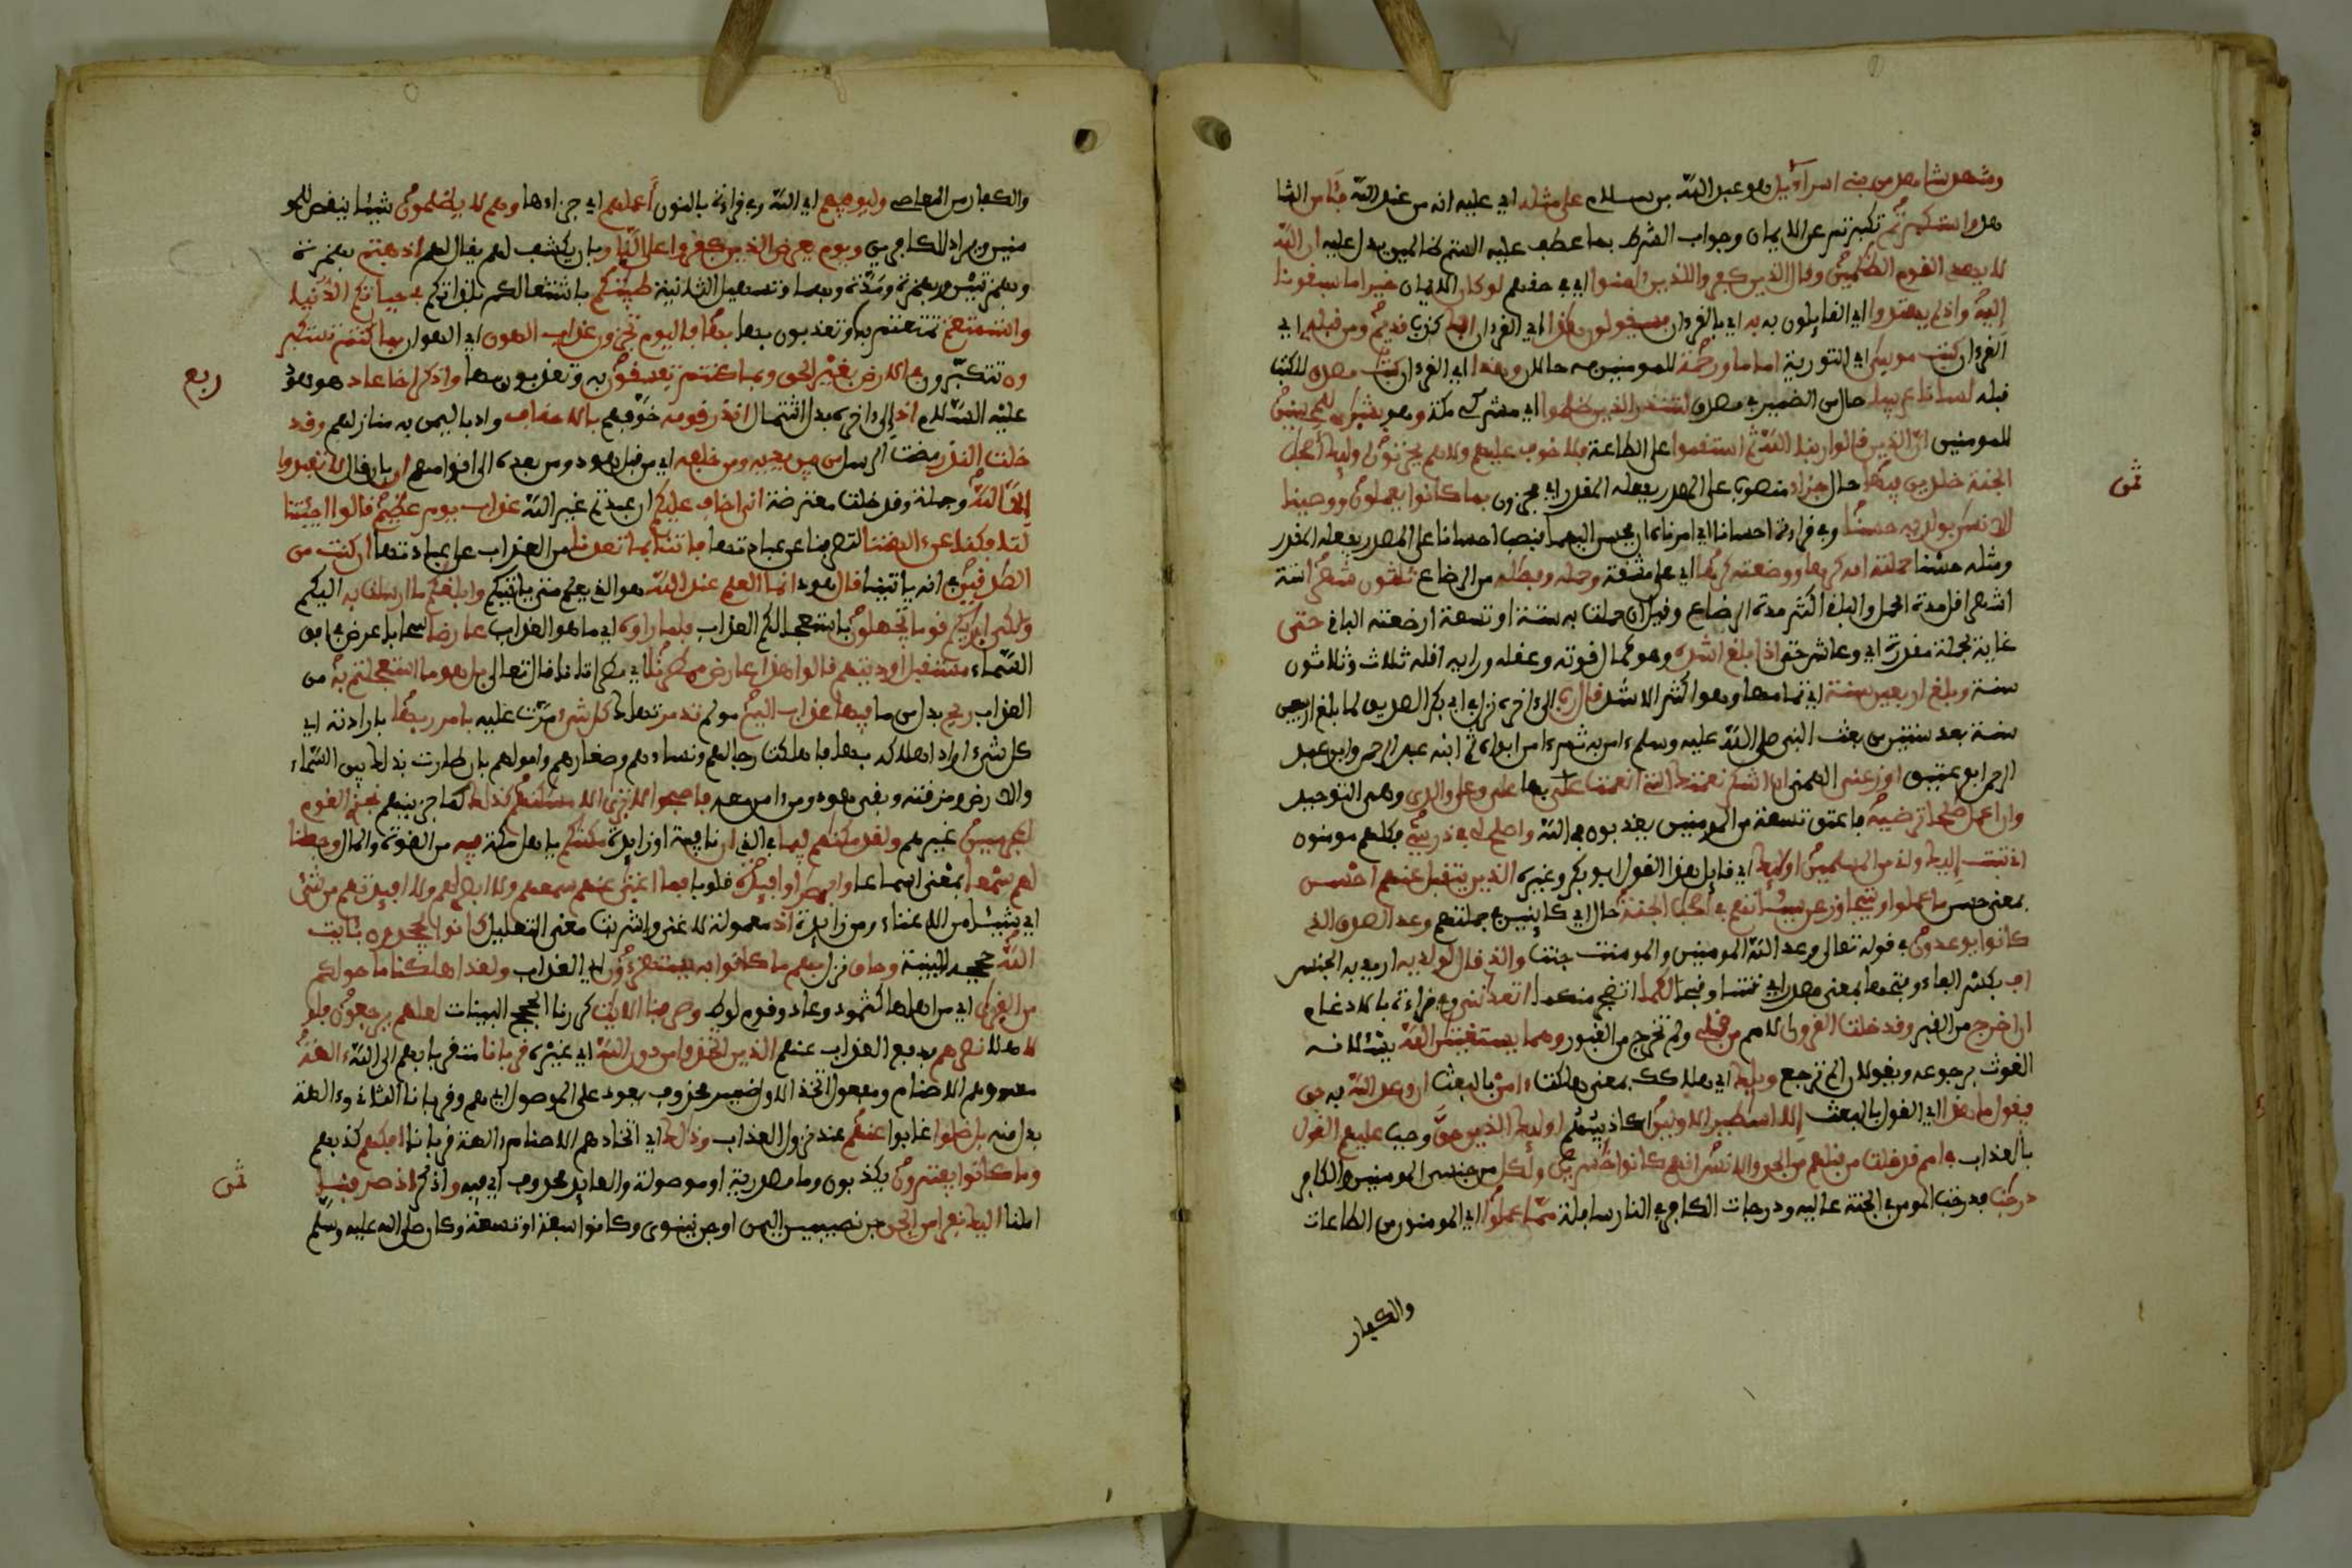 وشهد شاهد من بني اسرآءيل هو عبد الله بن سلام على مثله اي عليه انه من عند الله فئامن الشا
هد واستكبرتم تكبرتم عن الايمان وجواب الشرط بما عطف عليه الستم ظالمين يدل عليه ان الله
لا يهدى القوم الظلمين وقال الذين كفروا للذين ءامنوا اي في حقهم لو كان الايمان خيرا ما سبقونا
إليه واذ لم يهتدوا اي القايلون به اي بالقرءان فسيقولون هذا اي القرءان افك كذب قديم ومن قبله اي
القرءان كتب موسى اي التورية اماما ورحمة للمومنين به حالان وهذا اي القرءان كتب مصدق للكتب
قبله لسانا عربيا حال من الضمير في مصدق لتنذر الذين ظلموا اي مشركي مكة وهو بشرى للمحسنين
للمومنين ان الذين قالوا ربنا الله ثم استقموا على الطاعة فلا خوف عليهم ولا هم يحزنون اوليك أصحب
الجنة خلدين فيها حال جزاء منصوب على المصدر بفعله المقدر اي يجزون بما كانوا يعملون ووصينا
الانسن بولديه حسنا وفي قراءة احسانا اي امرناه ان يحسن اليهما فنصب احسانا على المصدر بفعله المقدر
ومثله حسنا حملته امه كرها ووضعته كرها اي على مشقة وحمله وفصله من الرضاع ثلثون شهرا ستة
اشهر اقل مدة الحمل والباقي اكثر مدة الرضاع وقيل ان حملت به ستة او تسعة ارضعته الباقي حتى
غاية لجملة مقدرة اي وعاش حتى اذا بلغ اشده وهو كمال قوته وعقله ورايه اقله ثلاث وثلاثون
سنة وبلغ اربعين سنة اي تمامها وهو اكثر الاشد قال رب الى ءاخره نزل في ابي بكر الصديق لما بلغ اربعين
سنة بعد سنتين من بعث النبي صلى الله عليه وسلم ءامن به ثم ءامن ابواه ثم ابنه عبد الرحمن وابن عبد
الرحمن ابو عتيق اوزعني الهمني ان اشكر نعمتك التي انعمت علي بها على وعلى والدي وهي التوحيد
وان اعمل صلحا ترضيه فاعتق تسعة من المومنين يعذبون في الله واصلح لي في ذريتي فكلهم مومنون
اني تبت إليك واني من المسلمين اوليك اي قايل هذا القول ابو بكر وغيره الذين يتقبل عنهم احسن
بمعنى حسن ما عملوا ويتجاوز عن سيئاتهم في أصحب الجنة حال اي كاينين في جملتهم وعد الصدق الذي
كانوا يوعدون في قوله تعالى وعد الله المومنين والمومنت جنت والذي قال لولديه اريد به الجنس
اف بكسر الفاء وفتحها بمعنى مصدر اي نتنا وقبحا لكما اتضجر منكما اتعدانني وفي قراءة بالادغام
ان اخرج من القبر وقد خلت القرون الامم من قبلي ولم تخرج من القبور وهما يستغيثن الله يسئلانه
الغوث برجوعه ويقولان ان لم ترجع ويلك اي هلاكك بمعنى هلكت ءامن بالبعث ان وعد الله به حق
فيقول ما هذا اي القول بالبعث إلا اسطير الاولين اكاذيبهم اوليك الذين حق وجب عليهم القول
بالعذاب في امم قد خلت من قبلهم من الجن والانس انهم كانوا خسرين ولكل من جنس المومنين والكافر
درجت فدرجت المومن في الجنة عاليه ودرجات الكافر في النار سافلة مما عملوا اي المومنون من الطاعات
والكفار
ثمن
والكفار من المعاصي وليوفيهم اي الله وفي قراءة بالنون أعملهم اي جزاءها وهم لا يظلمون شيئا ينقص للمو
منين ويزاد للكافرين ويوم يعرض الذين كفروا على النار بان يكشف لهم يقال لهم اذهبتم بهمزة
وبهمزتين وبهمزة ومدة وبهما وتسهيل الثانية طيبتكم باشتغالكم بلذاتكم في حياتكم الدنيا
واستمتعتم تمتعتم بها وتعذبون بها فاليوم تجزون عذاب الهون اي الهوان بما كنتم تستكبر
ون تتكبرون في الارض بغير الحق وبما كنتم تفسقون به وتعذبون بها واذكر اخا عاد هو هود
عليه السلام اذ إلى ءاخره بدل اشتمال انذر قومه خوفهم بالاحقاف واد باليمن به منازلهم وقد
خلت النذر مضت الرسل من بين يديه ومن خلفه اي من قبل هود ومن بعده الى اقوامهم ان بان قال لا تعبدوا
إلا الله وجملة وقد خلت معترضة اني اخاف عليكم ان عبدتم غير الله عذاب يوم عظيم قالوا اجئتنا
لتافكنا عن ءالهتنا لتصرفنا عن عبادتها فاتنا بما تعدنا من العذاب على عبادتها ان كنت من
الصدقين في انه ياتينا قال هود انما العلم عند الله هو الذي يعلم متى ياتيكم وابلغكم ما ارسلت به اليكم
ولكني اريكم قوما تجهلون باستعجالكم العذاب فلما راوه اي ما هو العذاب عارضا سحابا عرض في افق
السماء مستقبل اوديتهم قالوا هذا عارض ممطرنا اي ممطر ايانا قال تعالى بل هو ما استعجلتم به من
العذاب ريح بدل من ما فيها عذاب اليم مولم تدمر تهلك كل شيء مرت عليه بامر ربها بارادته اي
كل شيء اراد اهلاكه بها فاهلكت رجالهم ونساءهم وصغارهم واموالهم بان طارت بذلك بين السماء
والارض ومزقته وبقي هود ومن ءامن معه فاصبحوا لا ترى الا مسكنهم كذلك كما جزينهم نجزي القوم
المجرمين غيرهم ولقد مكنهم فيما في الذي ان نافية او زايدة مكنكم يا اهل مكة فيه من القوة والمال وجعلنا
لهم سمعا بمعنى اسماعا وابصرا وافيدة قلوبا فما اغنى عنهم سمعهم ولا ابصرهم ولا افيدتهم من شيء
اي شيئا من الاغناء ومن زايدة اذ معمولة لاغنى واشربت معنى التعليل كانوا يجحدون بئايت
الله حججه البينة وحاق نزل بهم ما كانوا به يستهزءون اي العذاب ولقد اهلكنا ما حولكم
من القرى اي من اهلها كثمود وعاد وقوم لوط وصرفنا الايت كررنا الحجج البينات لعلهم يرجعون فلو
لا هلا نصرهم بدفع العذاب عنهم الذين اتخذوا من دون الله اي غيره قربانا متقربا بهم الى الله ءالهة
معه وهم الاصنام ومفعول اتخذ الاول ضمير محذوف يعود على الموصول اي هم وقربانا الثاني وءالهة
بدل منه بل ضلوا غابوا عنهم عند نزول العذاب وذلك اي اتخاذهم الاصنام ءالهة قربانا افكهم كذبهم
وما كانوا يفترون يكذبون وما مصدرية او موصولة والعايد محذوف اي فيه واذكر اذ صرفنا
املنا اليك نفرا من الجن جن نصيبين اليمن او جن نينوى وكانوا سبعة او تسعة وكان صلى الله عليه وسلم
ربع
ثمن